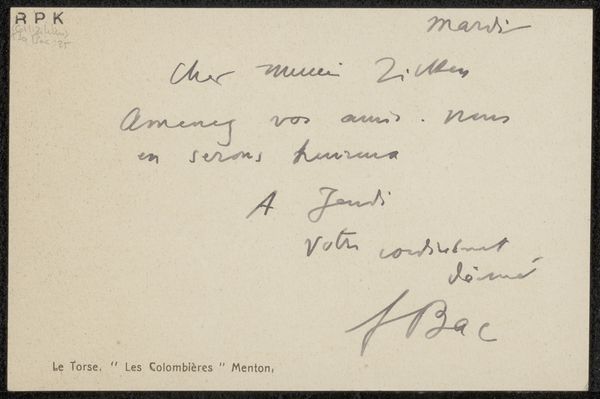 RPK
mardi
Cher Zilcken
Amenez vos amis. Nous
en serons heureux
A Jeudi
Votre cordialement
dévoué
F Bac
Le Torse. " Les Colombières " Menton,